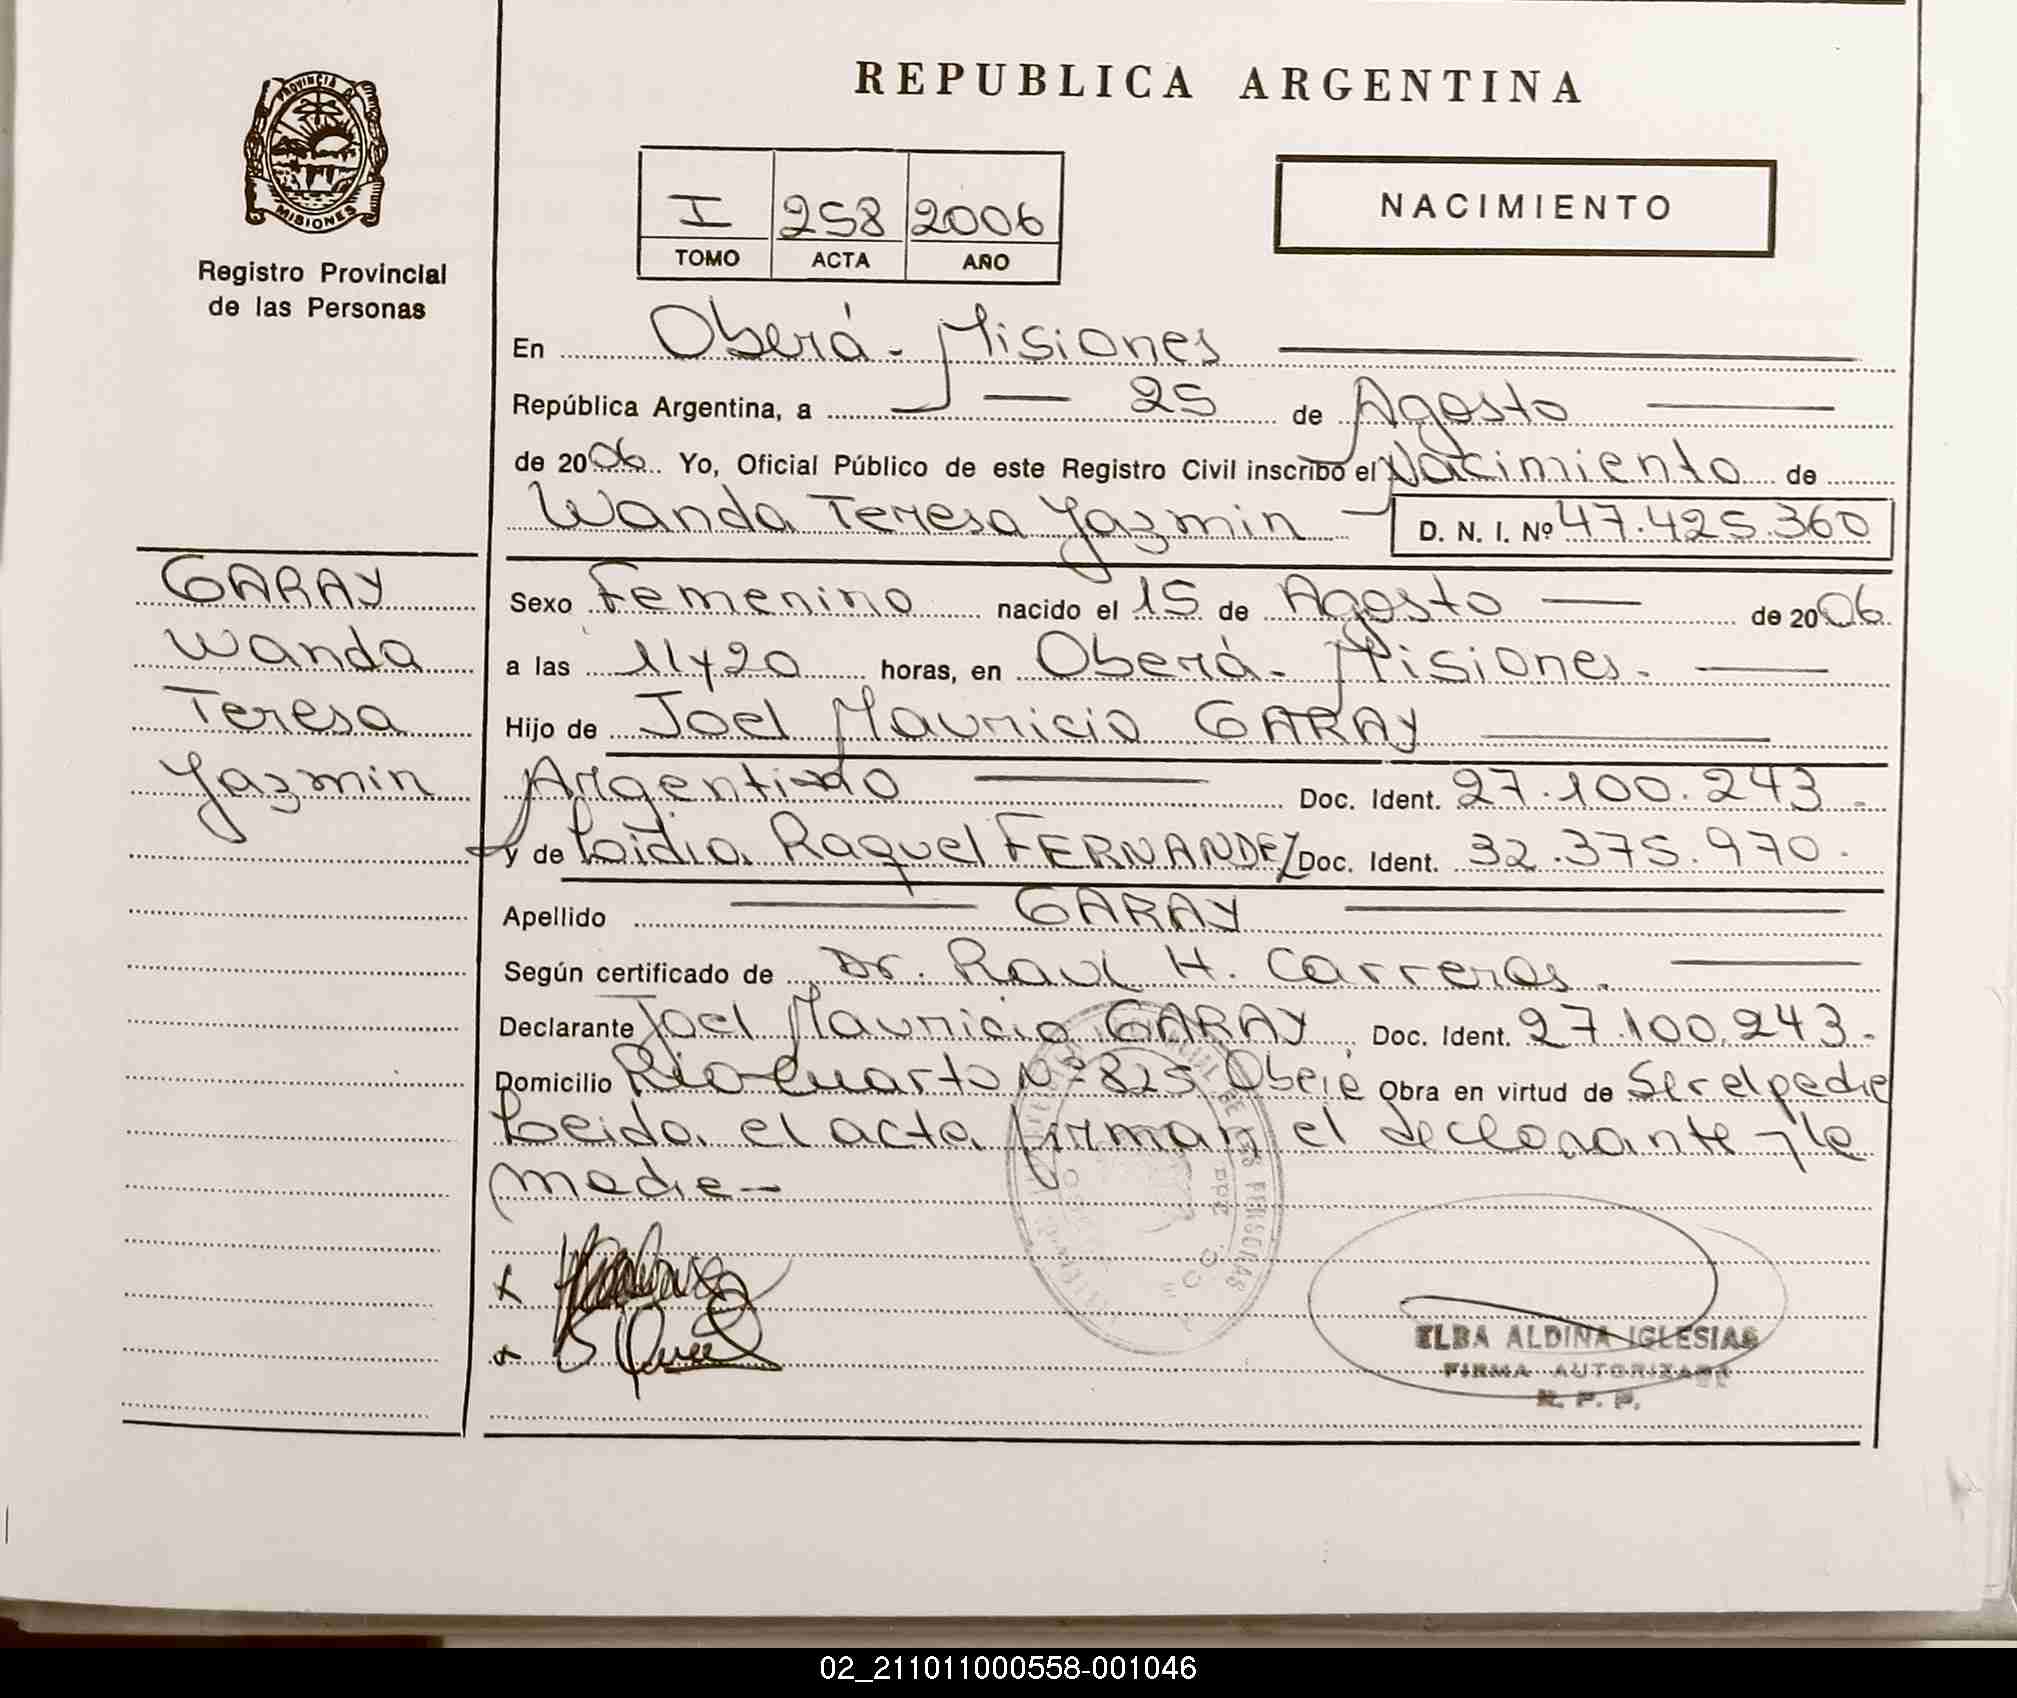 REPUBLICA ARGENTINA
PROVINCIA DE
MISIONES
Registro Provincial
de las Personas
I 258 2006
TOMO ACTA AÑO
NACIMIENTO
En Oberá - Misiones
República Argentina, a 25 de Agosto
de 2006 Yo, Oficial Público de este Registro Civil inscribo el Nacimiento de
Wanda Teresa Yazmin D. N. I. Nº 47.425.360
GARAY
Wanda
Teresa
Yazmin
Sexo Femenino nacido el 15 de Agosto de 2006
a las 11 y 20 horas, en Oberá - Misiones.
Hijo de Joel Mauricio GARAY
Argentino Doc. Ident. 27.100.243
y de Lidia Raquel FERNANDEZ Doc. Ident. 32.375.970.
Apellido GARAY
Según certificado de Dr. Raul H. Carreras.
Declarante Joel Mauricio GARAY Doc. Ident. 27.100.243.
Domicilio Rio Cuarto Nº 825 Oberá Obra en virtud de Ser el padre
Leida el acta firman el declarante y la
madre -
ELBA ALDINA IGLESIAS
FIRMA AUTORIZADA
R. P. P.
02_211011000558-001046